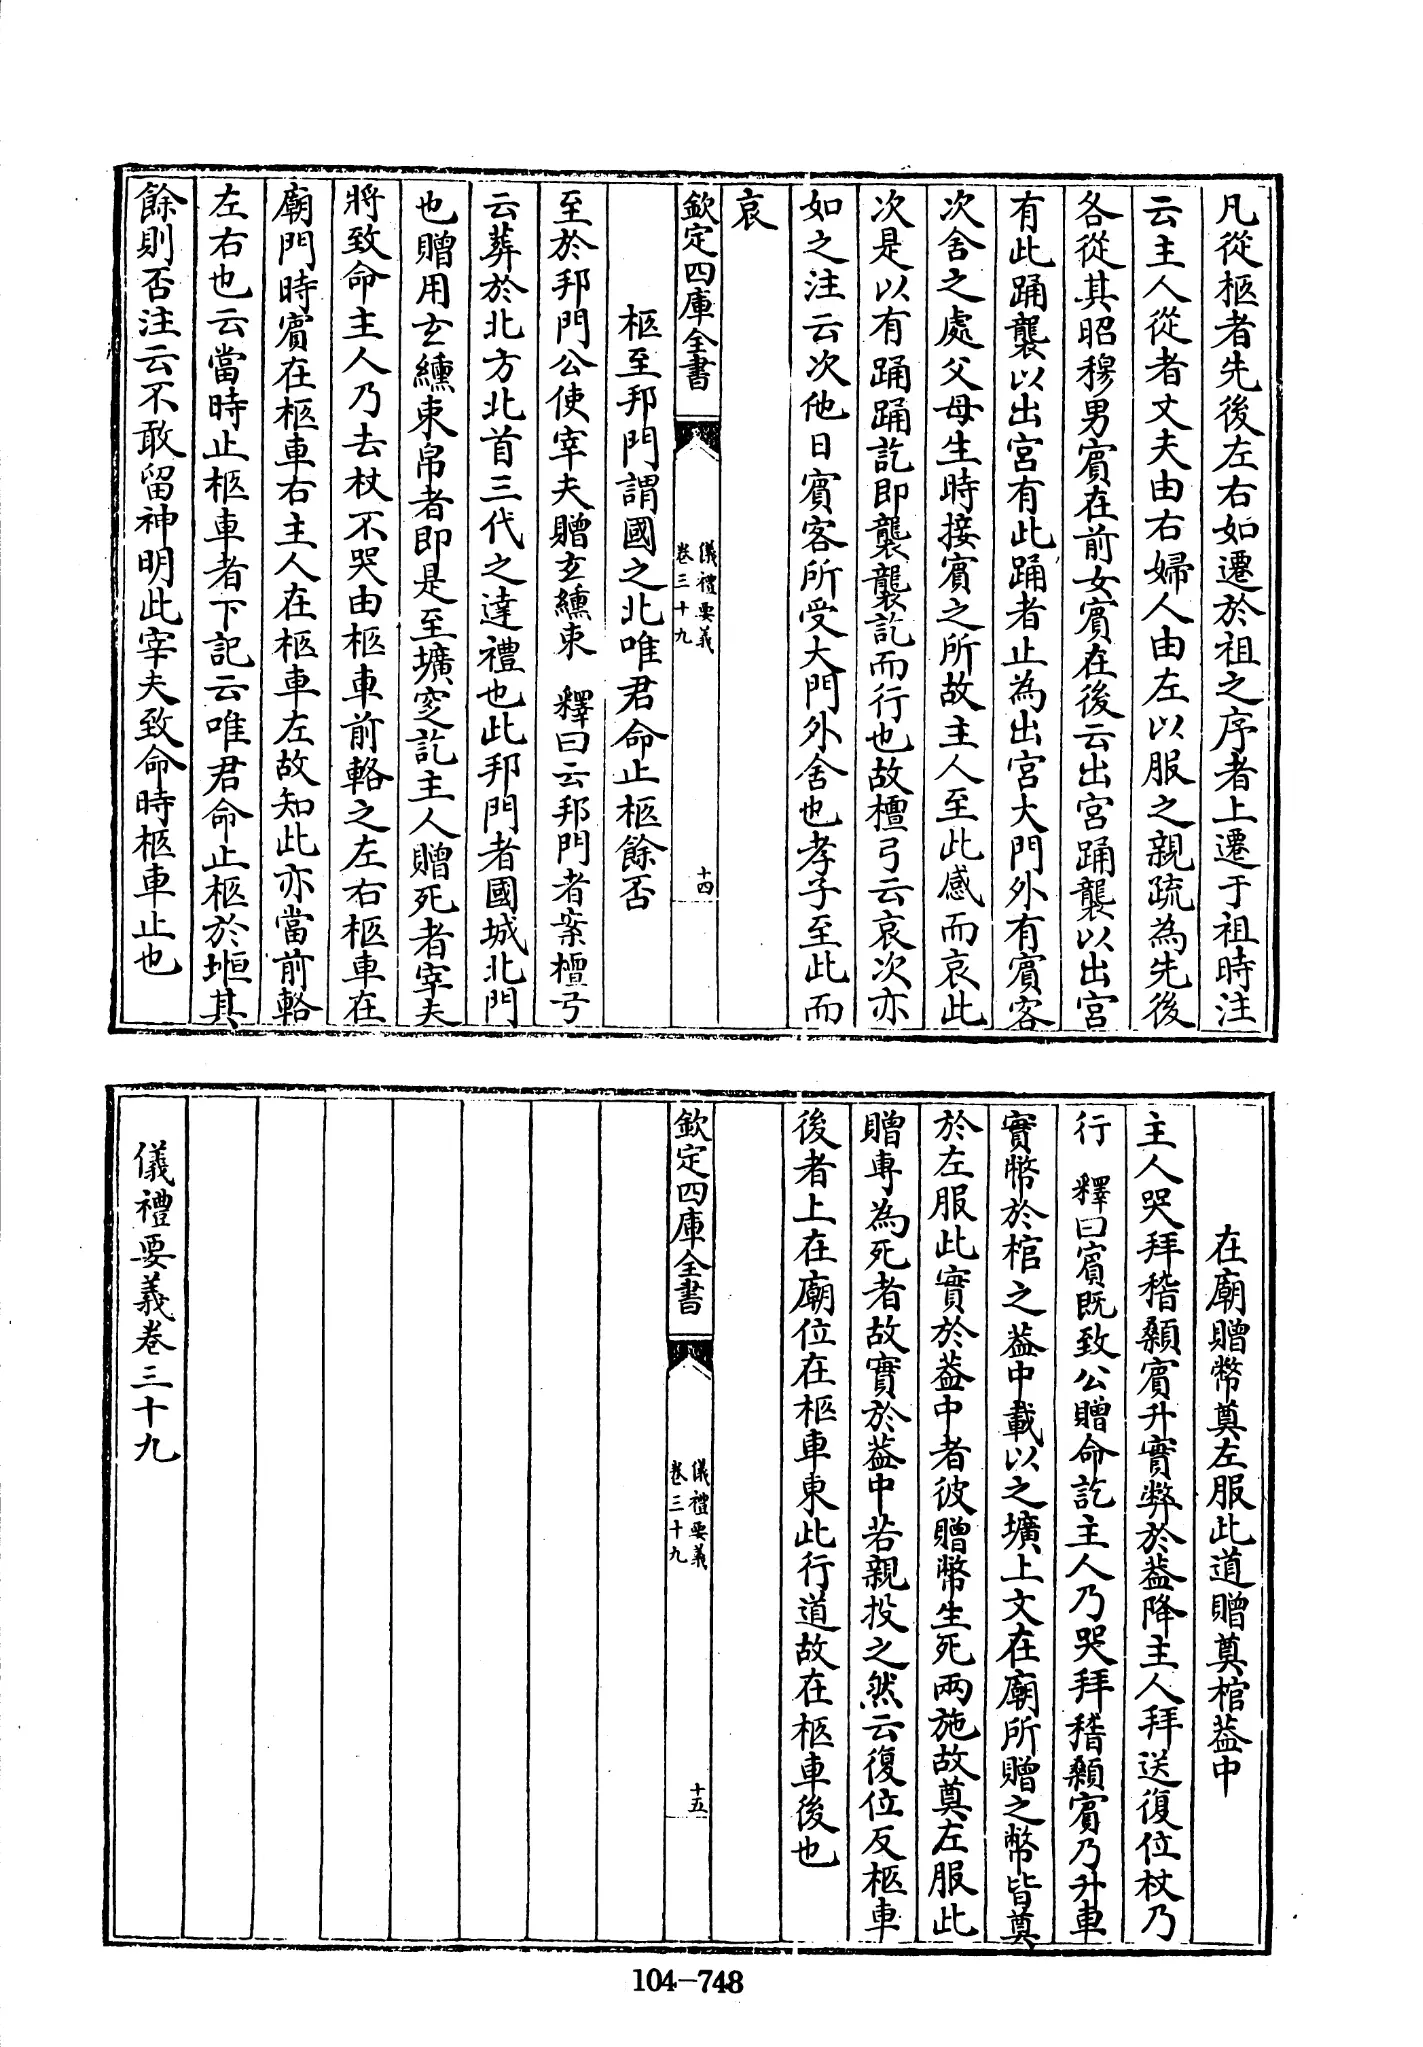 凡從柩者先後左右如遷於祖之序者上遷于祖時注
云主人從者丈夫由右婦人由左以服之親疏為先後
各從其昭穆男賓在前女賓在後云出宮踊襲以出宮
有此踊襲以出宮有此踊者止為出宮大門外有賓客
次舍之處父母生時接賓之所故主人至此感而哀此
次是以有踊踊訖即襲襲訖而行也故檀弓云哀次亦
如之注云次他日賓客所受大門外舍也孝子至此而
哀
欽定四庫全書
儀禮要義
卷三十九
十四
柩至邦門謂國之北唯君命止柩餘否
至於邦門公使宰夫贈玄纁束 釋曰云邦門者案檀弓
云葬於北方北首三代之達禮也此邦門者國城北門
也贈用玄纁束帛者即是至壙窆訖主人贈死者宰夫
將致命主人乃去杖不哭由柩車前輅之左右柩車在
廟門時賓在柩車右主人在柩車左故知此亦當前輅
左右也云當時止柩車者下記云唯君命止柩於堩其
餘則否注云不敢留神明此宰夫致命時柩車止也
在廟贈幣奠左服此道贈奠棺葢中
主人哭拜稽顙賓升實弊於葢降主人拜送復位杖乃
行 釋曰賓既致公贈命訖主人乃哭拜稽顙賓乃升車
實幣於棺之葢中載以之壙上文在廟所贈之幣皆奠
於左服此實於葢中者彼贈幣生死兩施故奠左服此
贈專為死者故實於葢中若親投之然云復位反柩車
後者上在廟位在柩車東此行道故在柩車後也
欽定四庫全書
儀禮要義
卷三十九
十五
儀禮要義卷三十九
104-748